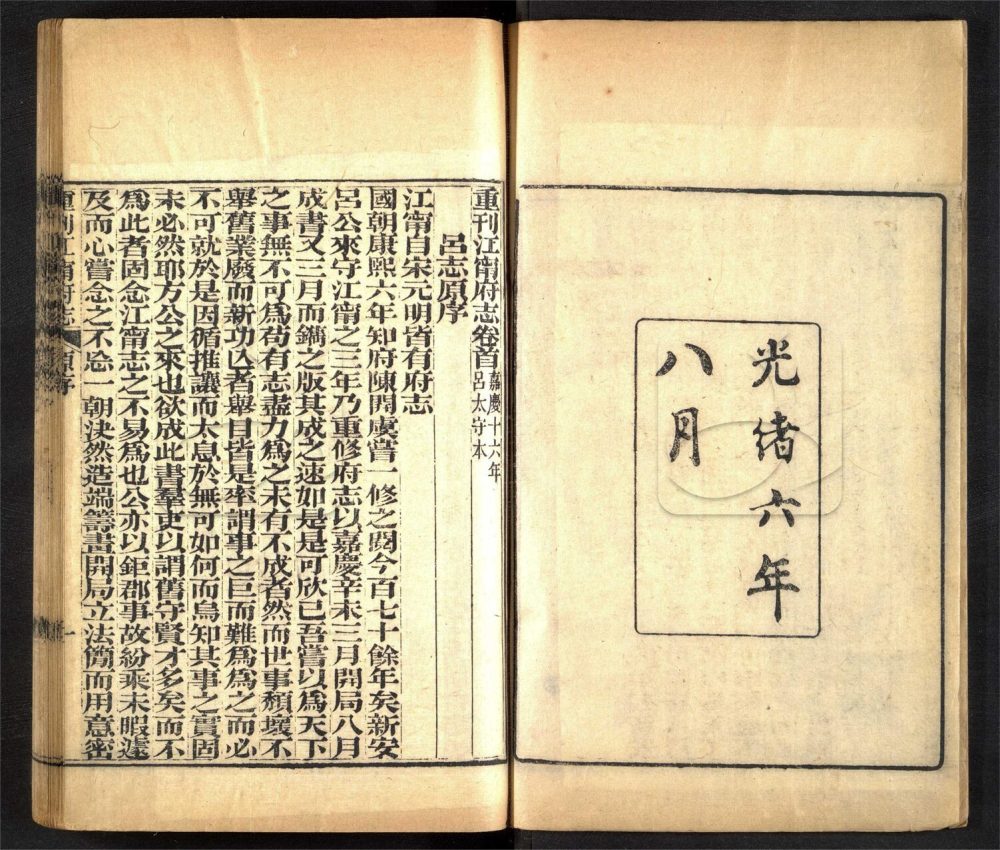 光緒六年
八月
重刊江甯府志卷首嘉慶十六年呂太守本
呂志原序
江甯自宋元明皆有府志
國朝康熙六年知府陳開虞嘗一修之閱今百七十餘年矣新安
呂公來守江甯之三年乃重修府志以嘉慶辛未三月開局八月
成書又三月而鐫之版其成之速如是是可欣已吾嘗以爲天下
之事無不可爲苟有志盡力爲之未有不成者然而世事頹壞不
舉舊業廢而新功亾者舉目皆是率謂事之巨而難爲爲之而必
不可就於是因循推讓而太息於無可如何而烏知其事之實固
未必然耶方公之來也欲成此書羣吏以謂舊守賢才多矣而不
爲此者固念江甯志之不易爲也公亦以鉅郡事故紛乘未暇遽
及而心嘗念之不忘一朝決然造端籌畫開局立法簡而用意密
重刊江甯府志 原序 一